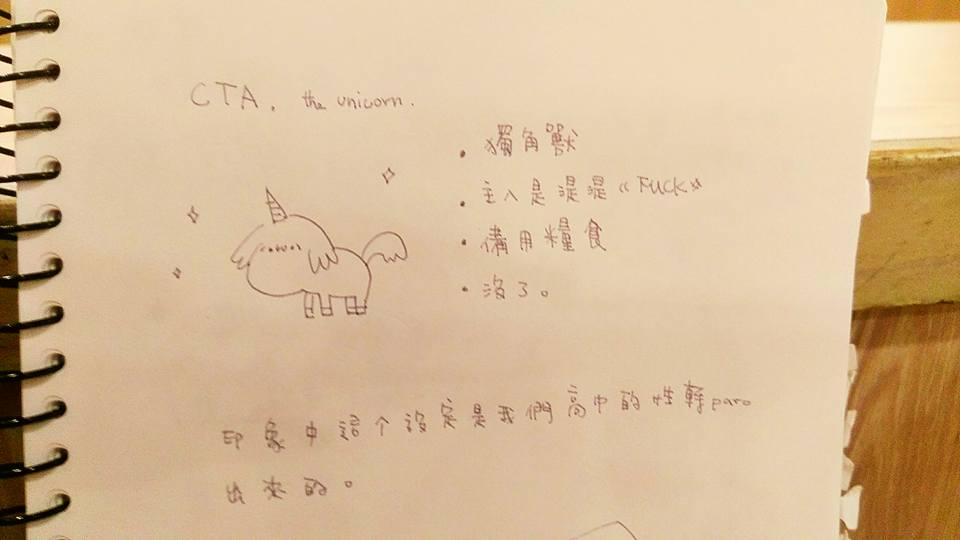 CTA, the unicorn.
• 獨角獸
• 主人是混混《FUCK》
• 備用糧食
• 沒了。
印象中這个設定是我們高中的性轉paro
出來的。